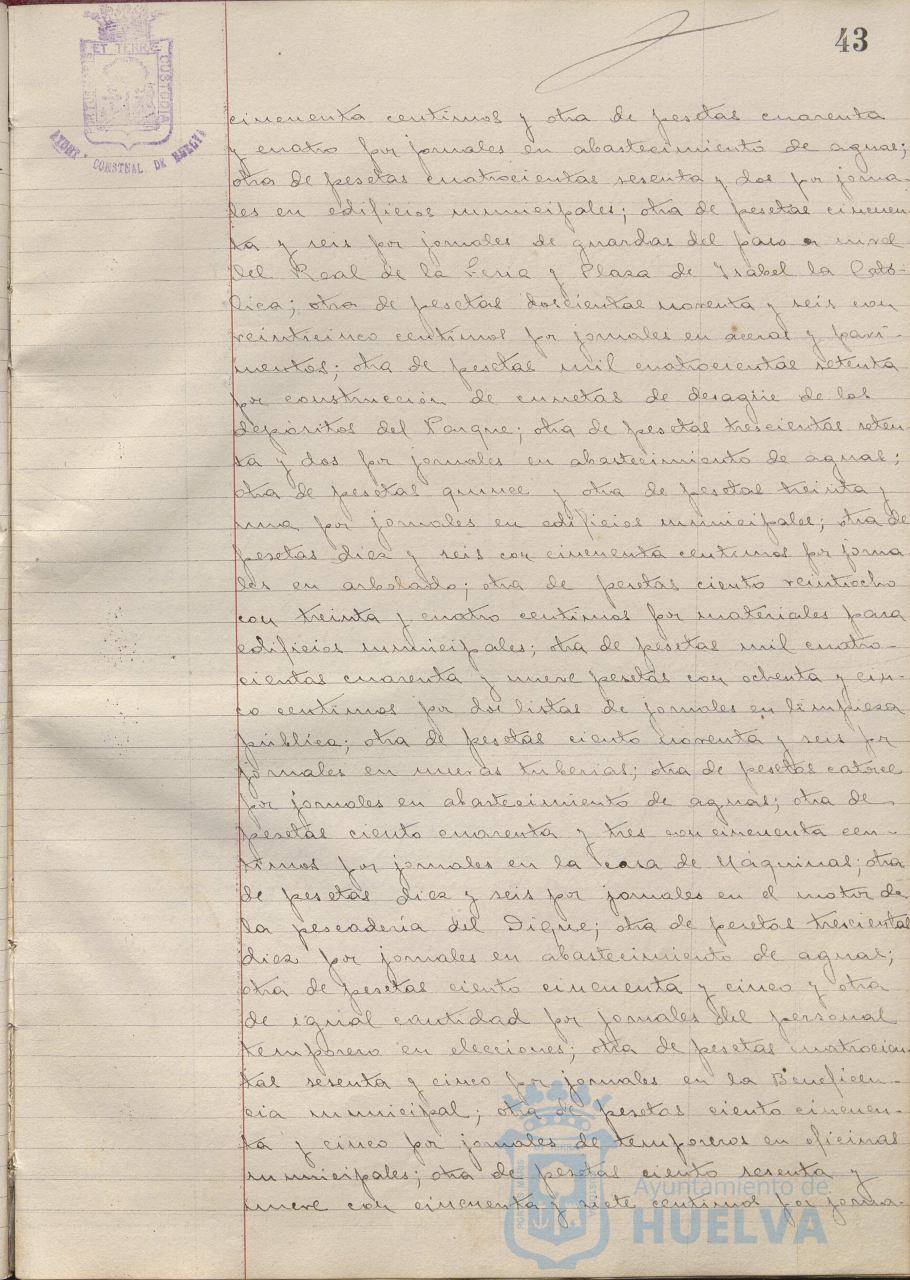 43
ET TERRE
CUSTODIA
CONSTNAL DE HUELVA
cincuenta centimos y otra de pesetas cuarenta
y cuatro por jornales en abastecimiento de aguas;
otra de pesetas cuatrocientas sesenta y dos por jorna-
les en edificios municipales; otra de pesetas cincuen-
ta y seis por jornales de guardas del paso a nivel
del Real de la Feria y Plaza de Isabel la Cató-
lica; otra de pesetas doscientas noventa y seis con
veinticinco centimos por jornales en aceras y pavi-
mentos; otra de pesetas mil cuatrocientas setenta
por construcción de cunetas de desagüe de los
depósitos del Parque; otra de pesetas trescientas seten-
ta y dos por jornales en abastecimiento de aguas;
otra de pesetas quince y otra de pesetas treinta y
una por jornales en edificios municipales; otra de
pesetas diez y seis con cincuenta centimos por jorna
les en arbolado; otra de pesetas ciento veintiocho
con treinta y cuatro centimos por materiales para
edificios municipales; otra de pesetas mil cuatro-
cientas cuarenta y nueve pesetas con ochenta y cin-
co centimos por dos listas de jornales en limpieza
pública; otra de pesetas ciento noventa y seis por
jornales en nuevas tuberias; otra de pesetas catorce
por jornales en abastecimiento de aguas; otra de
pesetas ciento cuarenta y tres con cincuenta cen-
timos por jornales en la Casa de Máquinas; otra
de pesetas diez y seis por jornales en el motor de
la pescadería del Dique; otra de pesetas trescientas
diez por jornales en abastecimiento de aguas;
otra de pesetas ciento cincuenta y cinco y otra
de igual cantidad por jornales del personal
temporero en elecciones; otra de pesetas cuatrocien-
tas sesenta y cinco por jornales en la Beneficen-
cia municipal; otra de pesetas ciento cincuen-
ta y cinco por jornales de temporeros en oficinas
municipales; otra de pesetas ciento sesenta y
nueve con cincuenta y siete centimos por jorna-
Ayuntamiento de
HUELVA